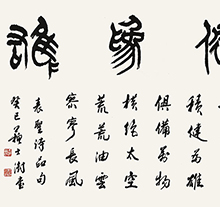 象
積健為雄
俱備萬物
橫絕太空
荒荒油雲
寥寥長風
表聖詩品句
癸巳蘇士澍書